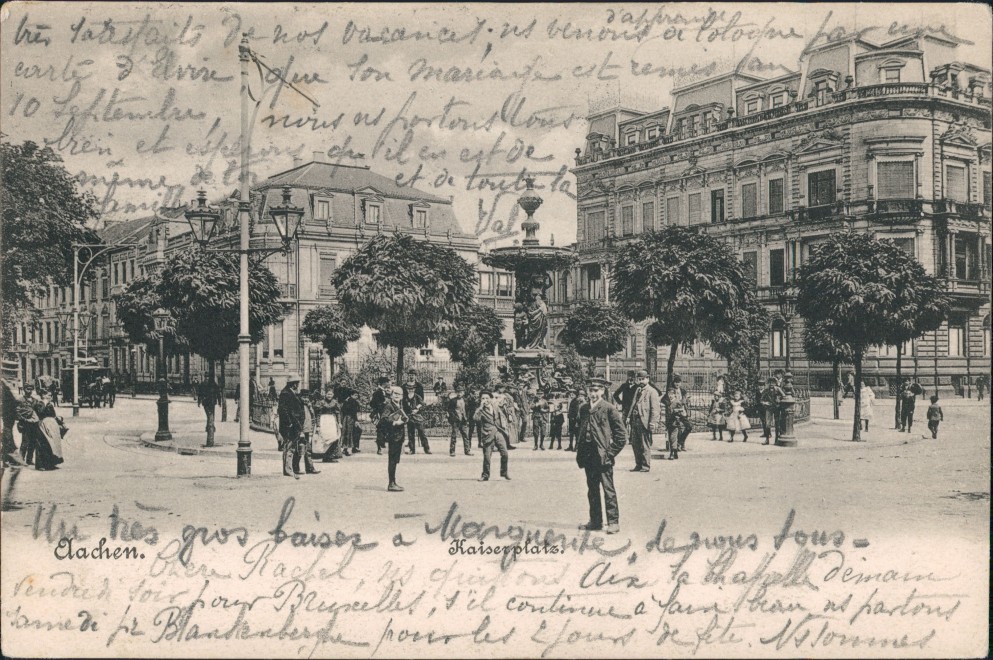 très satisfaits de nos vacances, ns venons d'apprendre à Cologne par une
carte d'Elvire que son mariage est remis au
10 Septembre, nous ns portons tous
bien et espérons qu'il en est de
même de toi et de toute la
famille
Val
Un très gros baiser à Marguerite, de nous tous=
Aachen.
Kaiserplatz.
Chère Rachel, ns quittons Aix la Chapelle demain
vendredi soir pour Bruxelles, s'il continue à faire beau, ns partons
samedi pr Blankenberghe pour les 2 jours de fête. Ns sommes